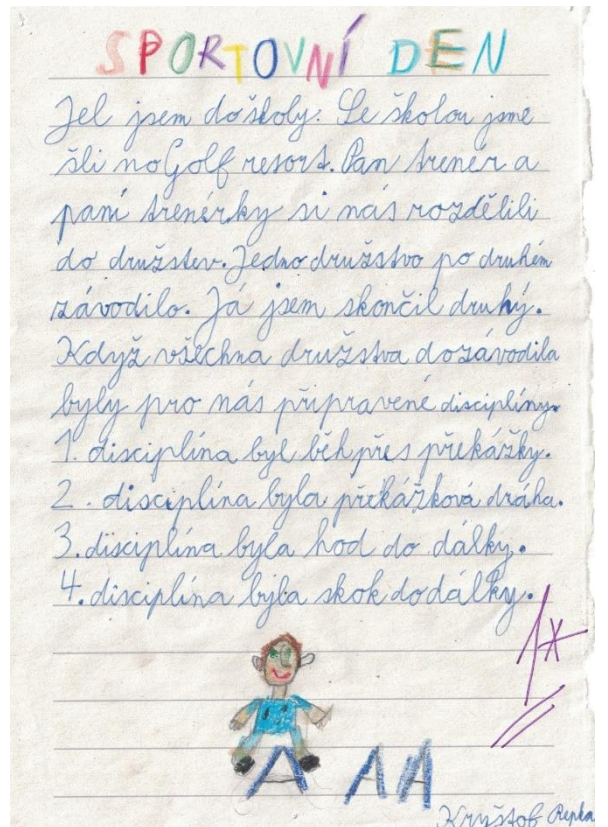 SPORTOVNÍ DEN
Jel jsem do školy. Se školou jsme
šli na Golf resort. Pan trenér a
paní trenérky si nás rozdělili
do družstev. Jedno družstvo po druhém
závodilo. Já jsem skončil druhý.
Když všechna družstva dozávodila
byly pro nás připravené disciplíny.
1. disciplína byl běh přes překážky.
2. disciplína byla překážková dráha.
3. disciplína byla hod do dálky.
4. disciplína byla skok do dálky.
1*
Kryštof Repka